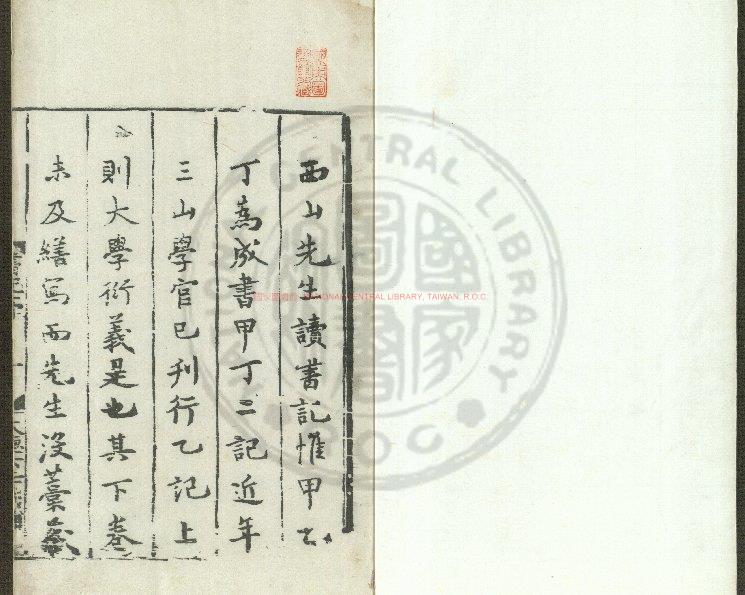 西山先生讀書記惟甲乙
丁為成書甲丁二記近年
三山學官已刊行乙記上
則大學衍義是也其下卷
未及繕寫而先生沒藁藏
國家圖書館 NATIONAL CENTRAL LIBRARY, TAIWAN, R.O.C.
NATIONAL CENTRAL LIBRARY
ROC
國家圖書